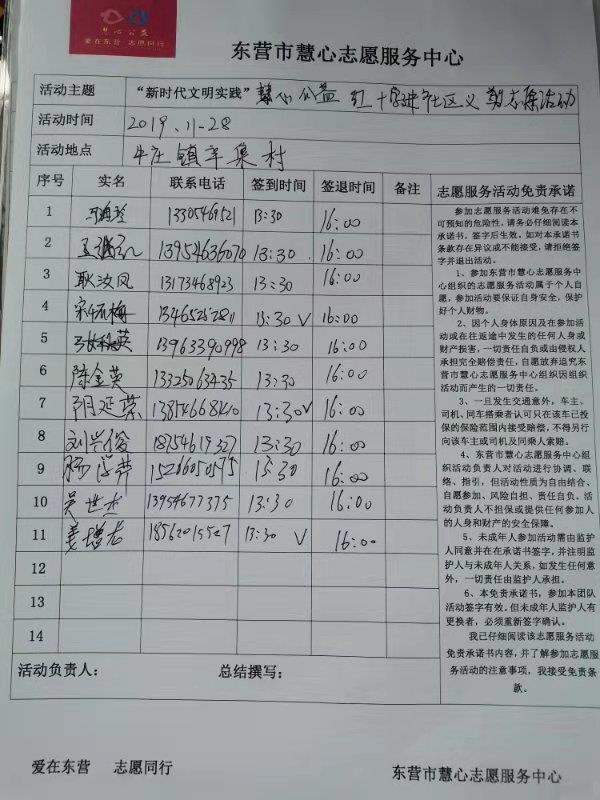 慧心公益
爱在东营 志愿同行
东营市慧心志愿服务中心
活动主题 “新时代文明实践”慧心公益 红十字进社区义剪志愿活动
活动时间 2019.11-28
活动地点 牛庄镇辛集村
序号 实名 联系电话 签到时间 签退时间 备注 志愿服务活动免责承诺
1 13305469521 13:30 16:00
2 13954636070 13:30 16:00
3 耿汝凤 13173468923 13:30 16:00
4 宋梅 13465252811 13:30 V 16:00
5 英 13963390998 13:30 16:00
6 陈金英 13325063435 13:30 16:00
7 阴延荣 13854668160 13:30 V 16:00
8 刘兴俊 18754619327 13:30 16:00
9 杨 15266050575 13:30 16:00
10 吴世杰 13954677375 13:30 16:00
11 姜增志 18562015527 13:30 V 16:00
12
13
14
参加志愿服务活动难免存在不
可预知的危险性，请务必仔细阅读本
承诺书，签字后生效。如对本承诺书
条款存在异议或不能接受，请拒绝签
字并退出活动。
1、参加东营市慧心志愿服务中
心组织的志愿服务活动属于个人自
愿，参加活动要保证自身安全，保护
好个人财物。
2、因个人身体原因及在参加活
动或在往返途中发生的任何人身或
财产损害，一切责任自负或由侵权人
承担完全赔偿责任，自愿放弃追究东
营市慧心志愿服务中心组织因组织
活动而产生的一切责任。
3、一旦发生交通意外，车主、
司机、同车搭乘者认可只在该车已投
保的保险范围内接受赔偿，不得另行
向该车主或司机及同乘人索赔。
4、东营市慧心志愿服务中心组
织活动负责人对活动进行协调、联
络、指引，但活动性质为自由结合、
自愿参加、风险自担、责任自负。活
动负责人不担保或提供任何参加人
的人身和财产的安全保障。
5、未成年人参加活动需由监护
人同意并在在承诺书签字，并注明监
护人与未成年人关系，如发生任何意
外，一切责任由监护人承担。
6、本免责承诺书，参加本团队
活动签字有效。但未成年人监护人有
更换者，必须重新签字确认。
我已仔细阅读该志愿服务活动
免责承诺书内容，并了解参加志愿服
务活动的注意事项，我接受免责条
款。
活动负责人： 总结撰写：
爱在东营 志愿同行 东营市慧心志愿服务中心